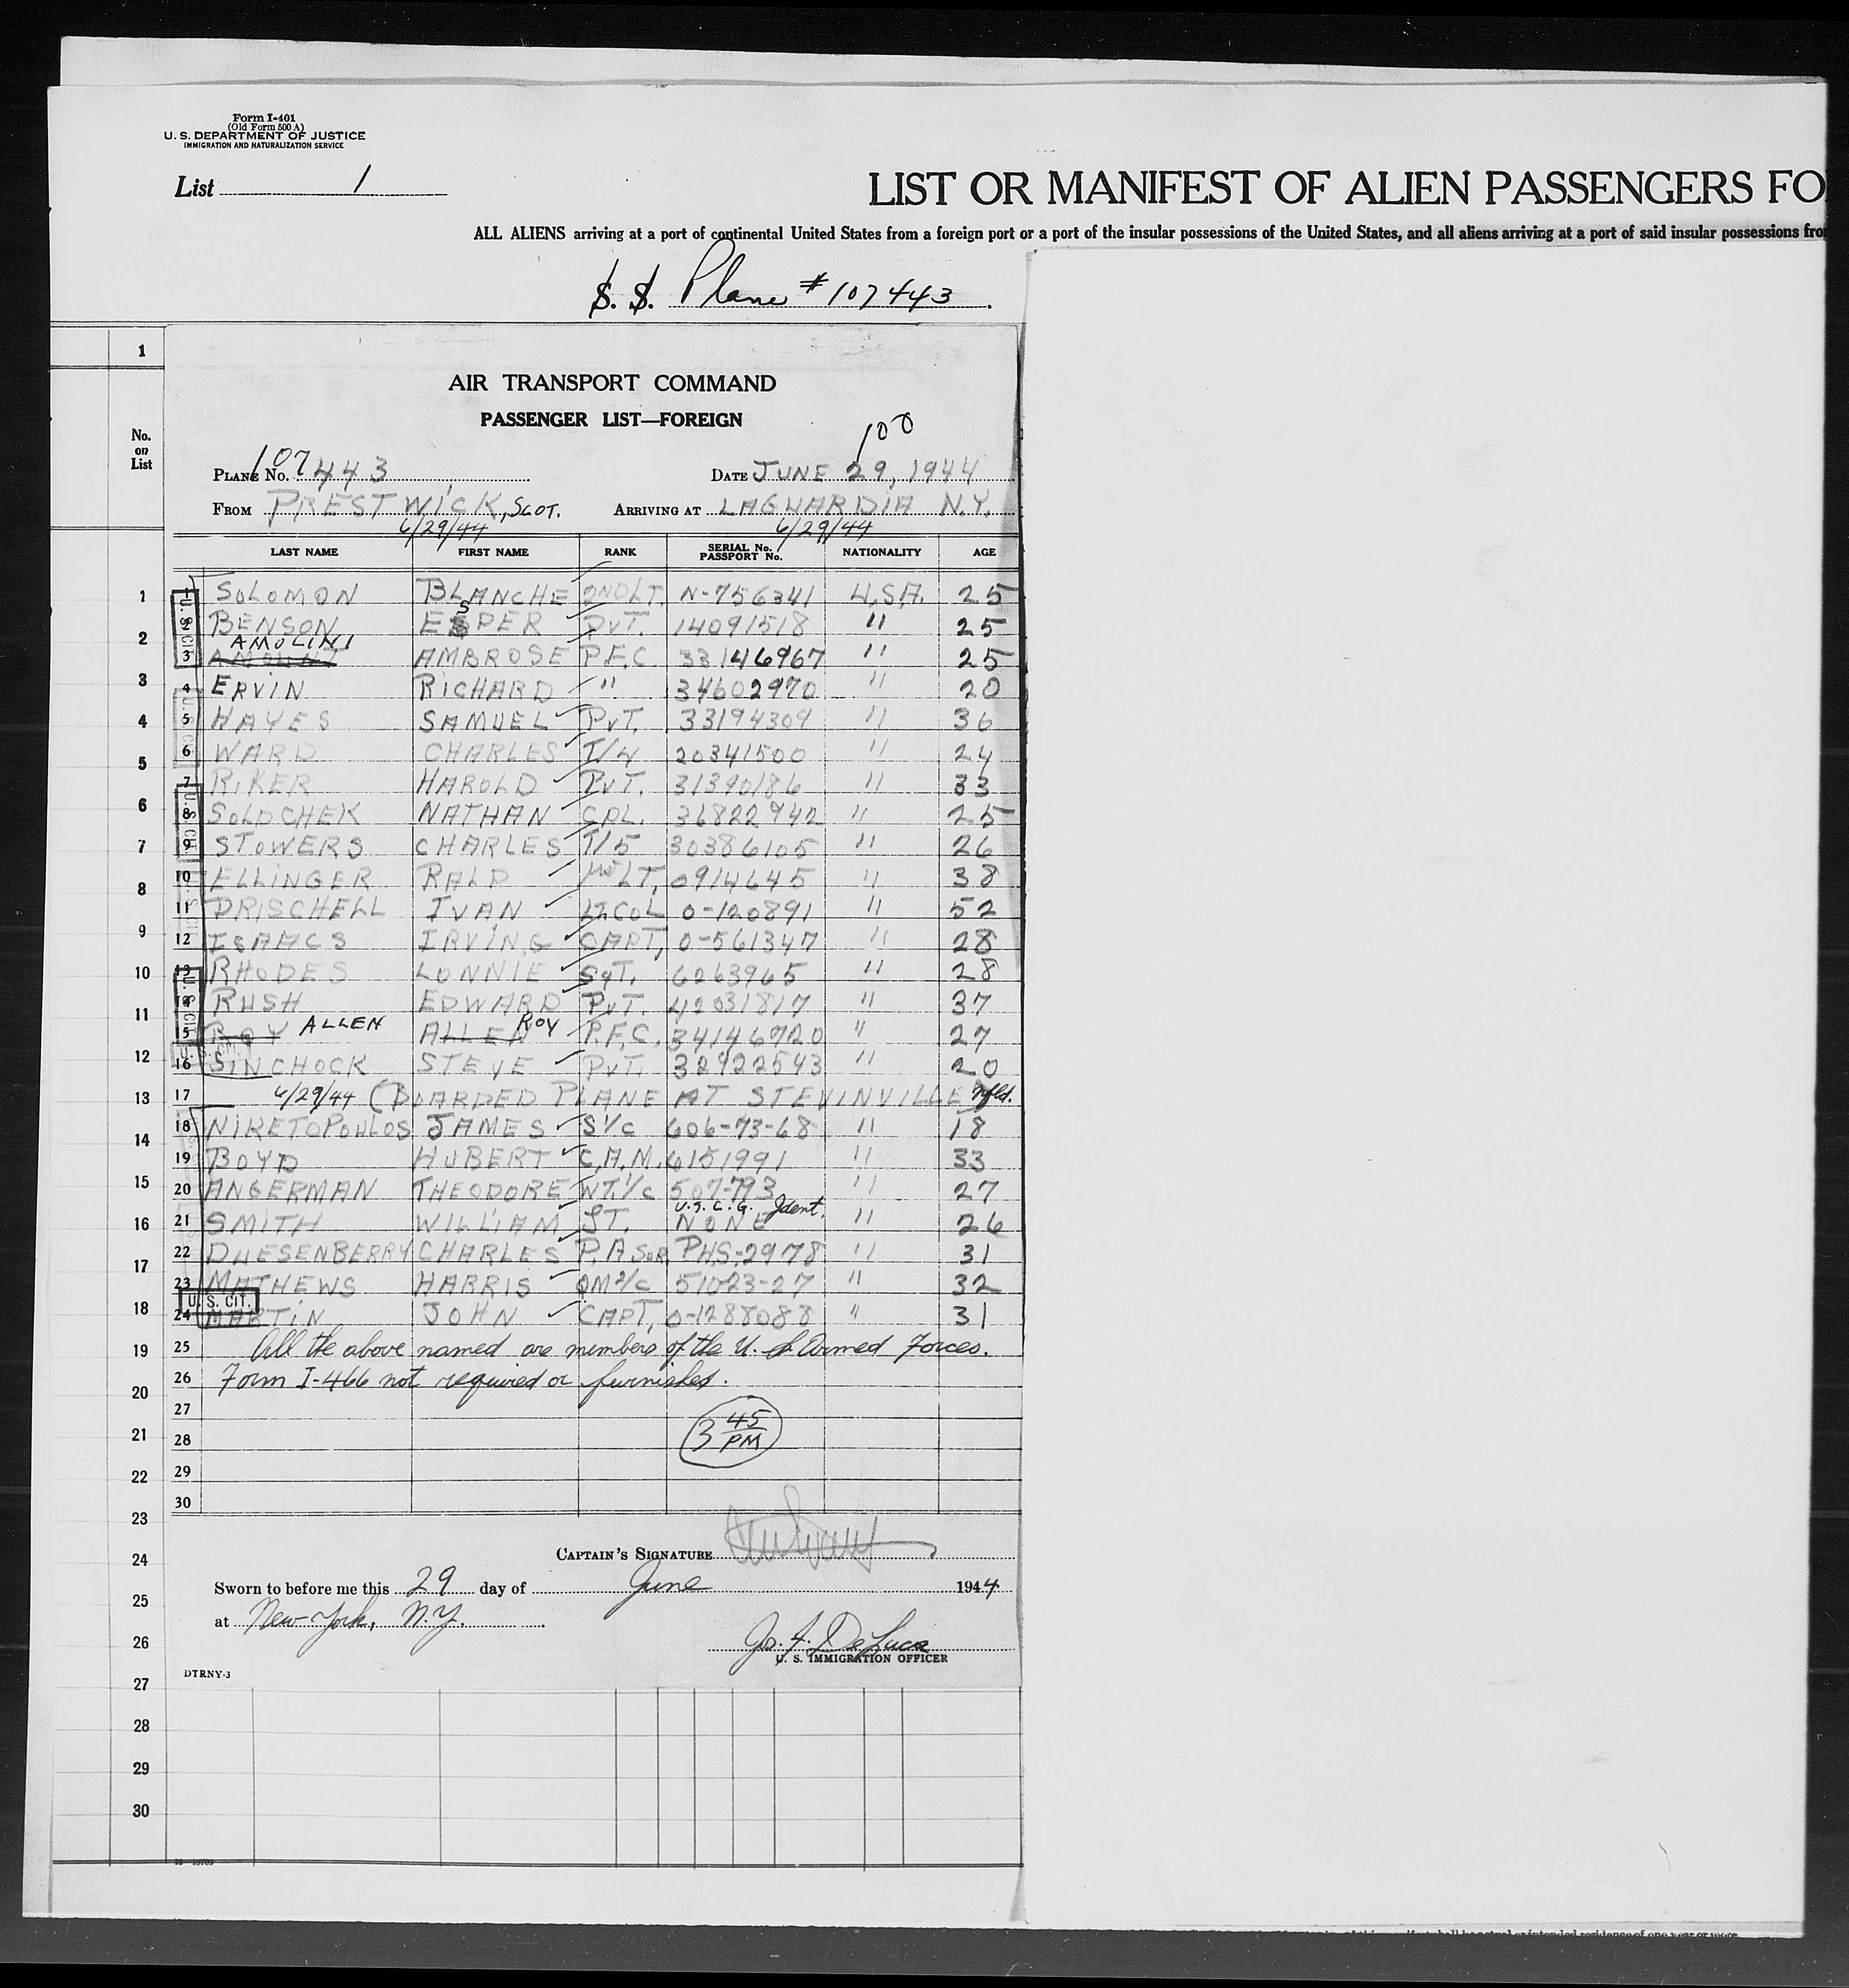 Form I-401
(Old Form 500 A)
U. S. DEPARTMENT OF JUSTICE
IMMIGRATION AND NATURALIZATION SERVICE
List 1
LIST OR MANIFEST OF ALIEN PASSENGERS FO
ALL ALIENS arriving at a port of continental United States from a foreign port or a port of the insular possessions of the United States, and all aliens arriving at a port of said insular possessions fro
S. S. Plane # 107443
1
No. on List
AIR TRANSPORT COMMAND
PASSENGER LIST—FOREIGN
100
PLANE No. 107443 DATE JUNE 29, 1944
FROM PRESTWICK, SCOT. ARRIVING AT LAGUARDIA N.Y.
6/29/44 6/29/44
LAST NAME FIRST NAME RANK SERIAL No. PASSPORT No. NATIONALITY AGE
1 SOLOMON BLANCHE 2ND LT. N-756341 U.S.A. 25
2 BENSON ESPER PVT. 14091518 " 25
3 AMOLINI AMBROSE P.F.C. 33146967 " 25
4 ERVIN RICHARD " 34602970 " 20
5 HAYES SAMUEL PVT. 33194309 " 36
6 WARD CHARLES T/4 20341500 " 24
7 RIKER HAROLD PVT. 31390186 " 33
8 SOLDCHEK NATHAN CPL. 36822942 " 25
9 STOWERS CHARLES T/5 30386105 " 26
10 ELLINGER RALD LT. 0914645 " 38
11 DRISCHELL IVAN LT. COL 0-120891 " 52
12 ISAACS IRVING CAPT, 0-561347 " 28
13 RHODES LONNIE SGT. 6263965 " 28
14 RUSH EDWARD PVT. 42031817 " 37
15 ROY ALLEN ALLEN ROY P.F.C. 34146720 " 27
16 SINCHOCK STEVE PVT. 32922543 " 20
17 6/29/44 (BOARDED PLANE AT STEVINVILLE Nfld.
18 NIRETOPOULOS JAMES S1/c 606-73-68 " 18
19 BOYD HUBERT C.A.M. 6151991 " 33
20 ANGERMAN THEODORE WT.1/c 507-793 " 27
U.S.C.G. Ident.
21 SMITH WILLIAM ST. NONE " 26
22 DUESENBERRY CHARLES P.A. SUR PHS-2978 " 31
23 MATHEWS HARRIS QM2/c 51023-27 " 32
U. S. CIT.
24 MARTIN JOHN CAPT, 0-1288088 " 31
25 All the above named are members of the U. S. Armed Forces.
26 Form I-466 not required or furnished.
27
3 45 PM
28
29
30
CAPTAIN'S SIGNATURE
Sworn to before me this 29 day of June 1944
at New York, N.Y.
Jos. A. DeLuca
U. S. IMMIGRATION OFFICER
DTRNY-3
1
2
3
4
5
6
7
8
9
10
11
12
13
14
15
16
17
18
19
20
21
22
23
24
25
26
27
28
29
30